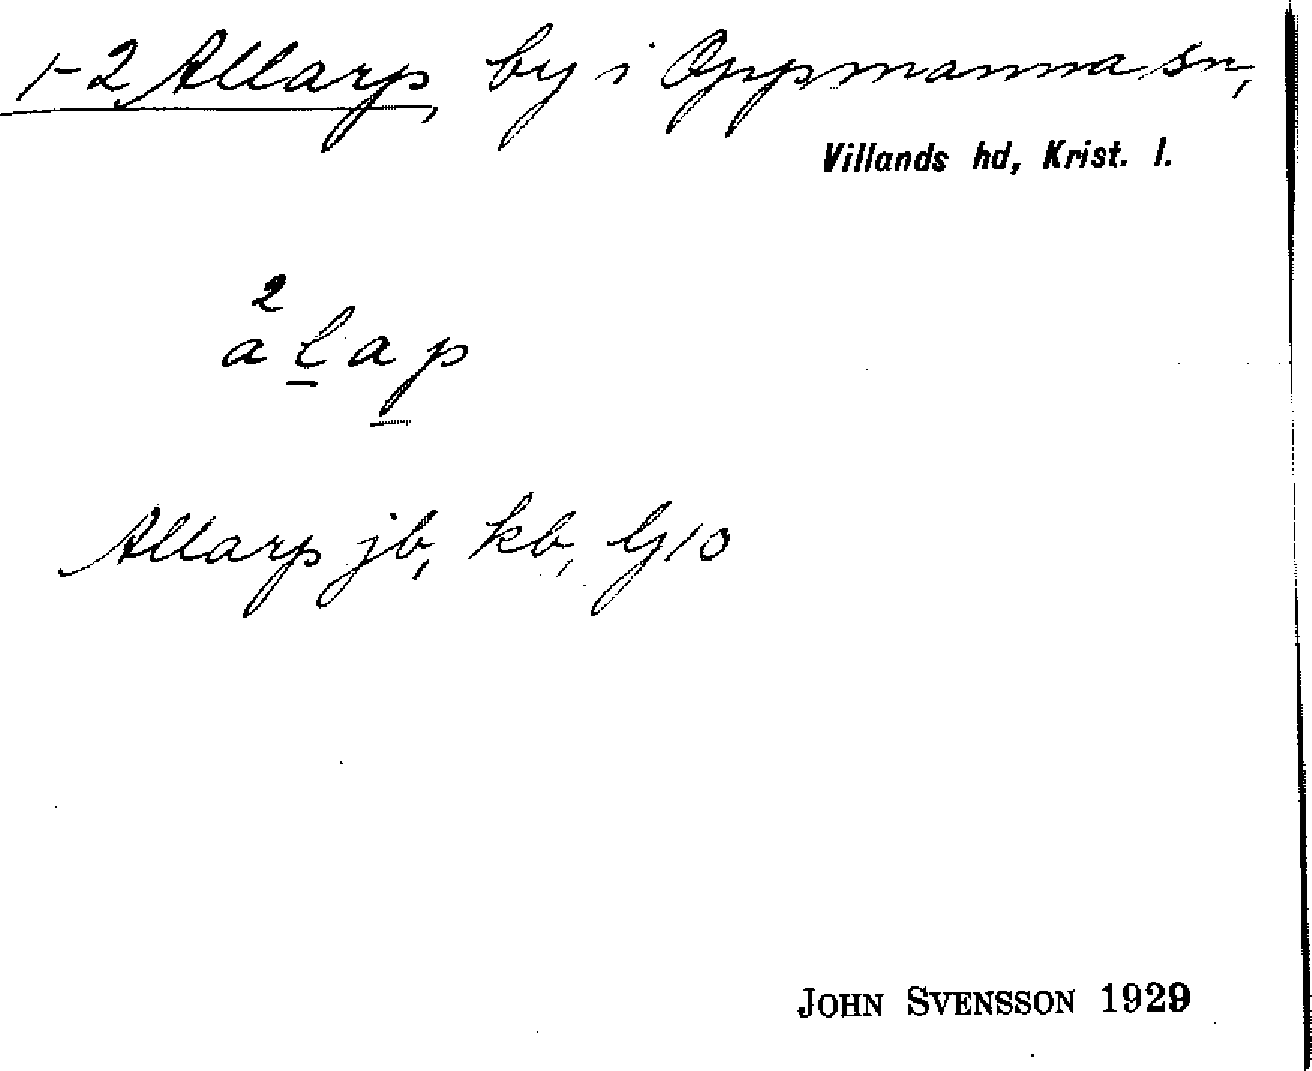 1-2 Allarp, by i Oppmanna sn,
Villands hd, Krist. l.
a²l̲ap̲
Allarp jb, kb, G10
JOHN SVENSSON 1929